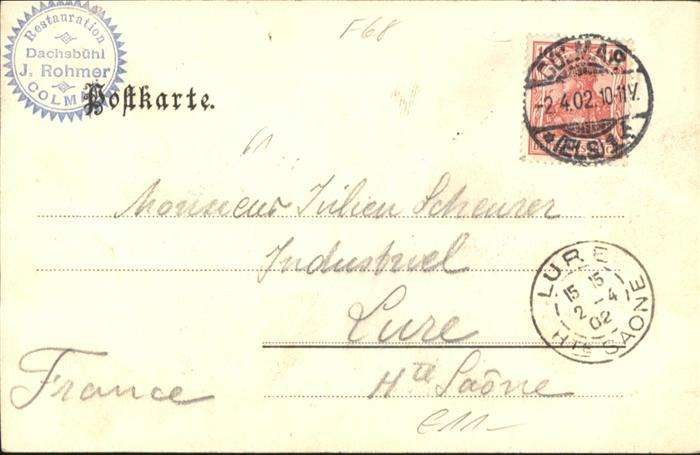 F68
Restauration
Dachsbühl
J. Rohmer
COLMAR
Postkarte.
COLMAR
-2.4.02.10-11V.
*(ELS.)*
Monsieur Julien Scheurer
Industriel
Lure
Hte Saône
France
LURE
15 15
2 - 4
02
Hte SAONE